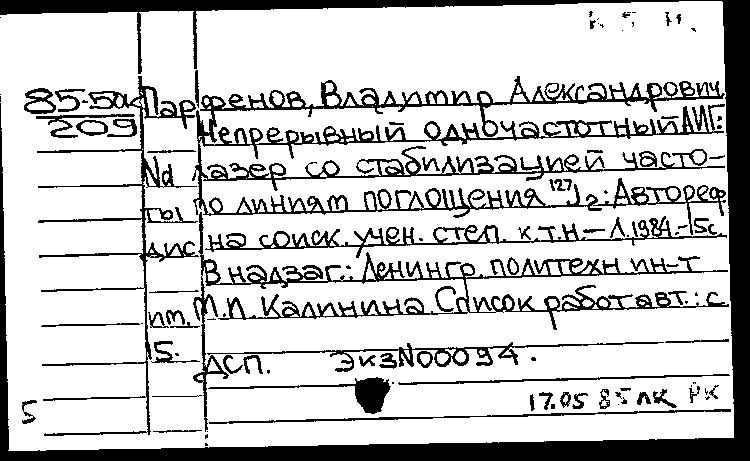 К 5 Н.
85-5дк Парфенов, Владимир Александрович
209 Непрерывный одночастотный АИГ:
Nd лазер со стабилизацией часто-
ты по линиям поглощения ¹²⁷J₂: Автореф
дис. на соиск. учен. степ. к.т.н. – Л, 1984. – 15с.
В надзаг.: Ленингр. политехн ин-т
им. М.И. Калинина. Список работ авт.: с
15.
ДСП. Экз N00094.
17.05 85 лк РК
5